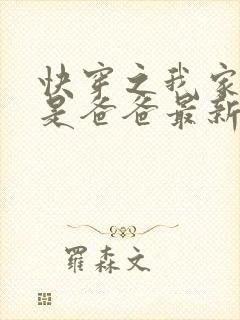 快穿之我家
是爸爸最新
羅森文